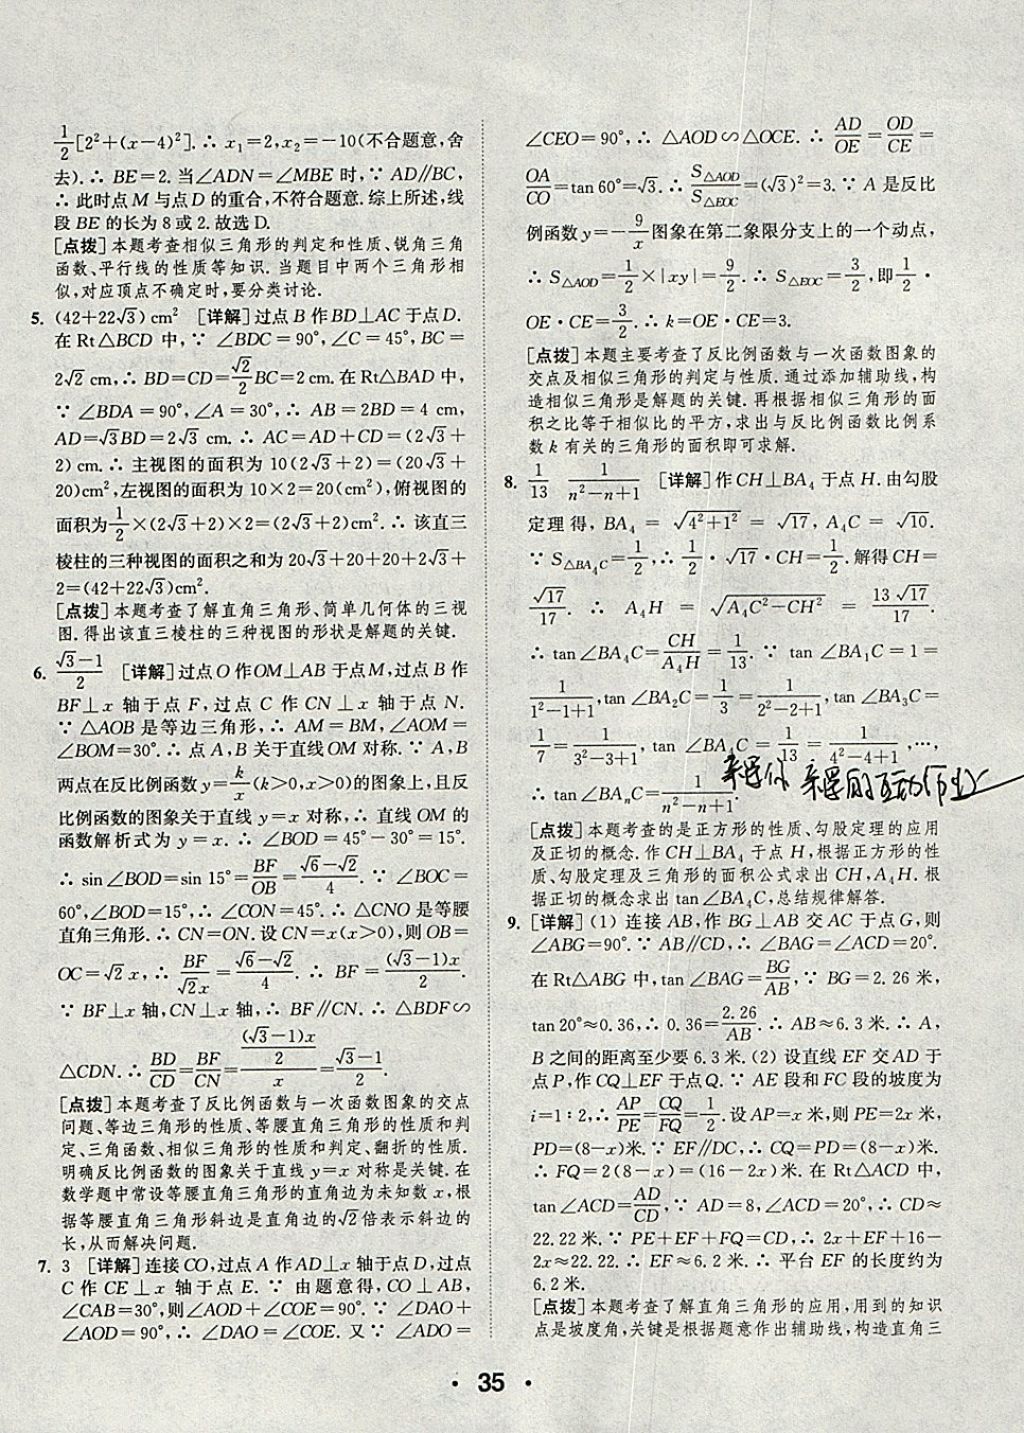 1/2[2²+(x-4)²].∴ x₁=2,x₂=-10(不合题意,舍
去).∴ BE=2. 当∠ADN=∠MBE 时,∵ AD∥BC,
∴ 此时点 M 与点 D 的重合,不符合题意. 综上所述,线
段 BE 的长为 8 或 2. 故选 D.
[点拨] 本题考查相似三角形的判定和性质、锐角三角
函数、平行线的性质等知识. 当题目中两个三角形相
似,对应顶点不确定时,要分类讨论.
5. (42+22√3) cm² [详解] 过点 B 作 BD⊥AC 于点 D.
在 Rt△BCD 中,∵ ∠BDC=90°,∠C=45°,BC=
2√2 cm,∴ BD=CD=√2/2 BC=2 cm. 在 Rt△BAD 中,
∵ ∠BDA=90°,∠A=30°,∴ AB=2BD=4 cm,
AD=√3BD=2√3 cm. ∴ AC=AD+CD=(2√3+
2) cm. ∴ 主视图的面积为 10(2√3+2)=(20√3+
20)cm²,左视图的面积为 10×2=20(cm²),俯视图的
面积为1/2×(2√3+2)×2=(2√3+2)cm². ∴ 该直三
棱柱的三种视图的面积之和为 20√3+20+20+2√3+
2=(42+22√3)cm².
[点拨] 本题考查了解直角三角形、简单几何体的三视
图. 得出该直三棱柱的三种视图的形状是解题的关键.
6. (√3-1)/2 [详解] 过点 O 作 OM⊥AB 于点 M,过点 B 作
BF⊥x 轴于点 F,过点 C 作 CN⊥x 轴于点 N.
∵ △AOB 是等边三角形,∴ AM=BM,∠AOM=
∠BOM=30°. ∴ 点 A,B 关于直线 OM 对称. ∵ A,B
两点在反比例函数 y=k/x(k>0,x>0)的图象上,且反
比例函数的图象关于直线 y=x 对称,∴ 直线 OM 的
函数解析式为 y=x. ∴ ∠BOD=45°-30°=15°.
∴ sin∠BOD=sin 15°=BF/OB=(√6-√2)/4. ∵ ∠BOC=
60°,∠BOD=15°,∴ ∠CON=45°. ∴ △CNO 是等腰
直角三角形. ∴ CN=ON. 设 CN=x(x>0),则 OB=
OC=√2x,∴ BF/√2x=(√6-√2)/4. ∴ BF=(√3-1)x/2.
∵ BF⊥x 轴,CN⊥x 轴,∴ BF∥CN. ∴ △BDF∽
△CDN. ∴ BD/CD=BF/CN=((√3-1)x/2)/x=(√3-1)/2.
[点拨] 本题考查了反比例函数与一次函数图象的交点
问题、等边三角形的性质、等腰直角三角形的性质和判
定、三角函数、相似三角形的性质和判定、翻折的性质.
明确反比例函数的图象关于直线 y=x 对称是关键. 在
数学题中常设等腰直角三角形的直角边为未知数 x,根
据等腰直角三角形斜边是直角边的√2倍表示斜边的
长,从而解决问题.
7. 3 [详解] 连接 CO,过点 A 作 AD⊥x 轴于点 D,过点
C 作 CE⊥x 轴于点 E. ∵ 由题意得,CO⊥AB,
∠CAB=30°,则∠AOD+∠COE=90°. ∵ ∠DAO+
∠AOD=90°,∴ ∠DAO=∠COE. 又∵ ∠ADO=
∠CEO=90°,∴ △AOD∽△OCE. ∴ AD/OE=OD/CE=
OA/CO=tan 60°=√3. ∴ S△AOD/S△EOC=(√3)²=3. ∵ A 是反比
例函数 y=-9/x图象在第二象限分支上的一个动点,
∴ S△AOD=1/2×|xy|=9/2. ∴ S△EOC=3/2,即1/2·
OE·CE=3/2. ∴ k=OE·CE=3.
[点拨] 本题主要考查了反比例函数与一次函数图象的
交点及相似三角形的判定与性质. 通过添加辅助线,构
造相似三角形是解题的关键. 再根据相似三角形的面
积之比等于相似比的平方,求出与反比例函数比例系
数 k 有关的三角形的面积即可求解.
8. 1/13 1/(n²-n+1) [详解] 作 CH⊥BA₄ 于点 H. 由勾股
定理得,BA₄=√(4²+1²)=√17,A₄C=√10.
∵ S△BA₄C=1/2,∴ 1/2·√17·CH=1/2. 解得 CH=
√17/17. ∴ A₄H=√(A₄C²-CH²)=13√17/17.
∴ tan∠BA₄C=CH/A₄H=1/13. ∵ tan∠BA₁C=1=
1/(1²-1+1),tan∠BA₂C=1/3=1/(2²-2+1),tan∠BA₃C=
1/7=1/(3²-3+1),tan∠BA₄C=1/13=1/(4²-4+1),…,
∴ tan∠BAₙC=1/(n²-n+1).
[点拨] 本题考查的是正方形的性质、勾股定理的应用
及正切的概念. 作 CH⊥BA₄ 于点 H,根据正方形的性
质、勾股定理及三角形的面积公式求出 CH,A₄H. 根
据正切的概念求出 tan∠BA₄C,总结规律解答.
9. [详解] (1) 连接 AB,作 BG⊥AB 交 AC 于点 G,则
∠ABG=90°. ∵ AB∥CD,∴ ∠BAG=∠ACD=20°.
在 Rt△ABG 中,tan∠BAG=BG/AB,∵ BG=2.26 米,
tan20°≈0.36,∴ 0.36=2.26/AB. ∴ AB≈6.3 米. ∴ A,
B 之间的距离至少要 6.3 米. (2) 设直线 EF 交 AD 于
点 P,作 CQ⊥EF 于点 Q. ∵ AE 段和 FC 段的坡度为
i=1∶2,∴ AP/PE=CQ/FQ=1/2. 设 AP=x 米,则 PE=2x 米,
PD=(8-x)米. ∵ EF∥DC,∴ CQ=PD=(8-x)米.
∴ FQ=2(8-x)=(16-2x)米. 在 Rt△ACD 中,
tan∠ACD=AD/CD,∵ AD=8,∠ACD=20°,∴ CD≈
22.22 米. ∵ PE+EF+FQ=CD,∴ 2x+EF+16-
2x≈22.22. ∴ EF≈6.2 米. ∴ 平台 EF 的长度约为
6.2 米.
[点拨] 本题考查了解直角三角形的应用,用到的知识
点是坡度角,关键是根据题意作出辅助线,构造直角三
· 35 ·